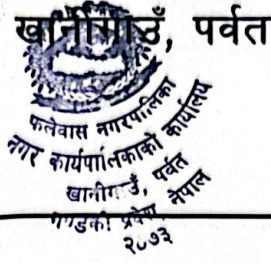 खानीगाउँ, पर्वत
फलेवास नगरपालिका
नगर कार्यपालिकाको कार्यालय
खानीगाउँ, पर्वत
गण्डकी प्रदेश, नेपाल
२०७३